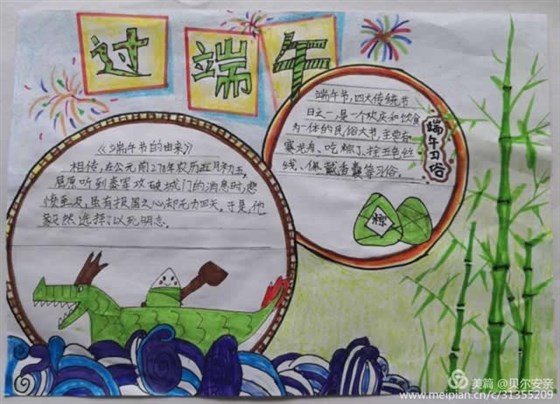 过端午
《端午节的由来》
相传，在公元前278年农历五月初五，
屈原听到秦军攻破城门的消息时，悲
愤至极，虽有报国之心却无力回天。于是，他
毅然选择：以死明志。
端午节，四大传统节
日之一，是一个欢庆和饮食
为一体的民俗大节，主要有
赛龙舟、吃粽子、拴五色丝
线、佩戴香囊等习俗。
端午习俗
粽
美篇 @贝尔安亲
www.meipian.cn/c/31355209